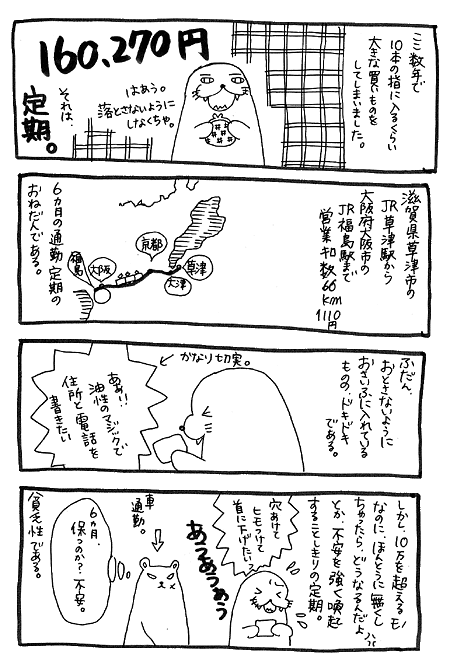 ここ数年で
10本の指に入るくらい
大きな買いものを
してしまいました。
160,270円
はあう。
落とさないように
しなくちゃ。
それは、
定期。
滋賀県草津市の
JR草津駅から
大阪府大阪市の
JR福島駅まで
営業キロ数66km
1110円
草津
大津
京都
大阪
福島
6カ月の通勤定期の
おねだんである。
ふだん、
おとさないように
おさいふに入れている
ものの、ドキドキ
である。
かなり切実。
ああ!!
油性のマジックで
住所と電話を
書きたい
しかし、10万を超えるモノ
なのに、ほんとうに無くし
ちゃったら、どうなるんだよ
とか、不安を強く喚起
することしきりの定期。
穴あけて
ヒモつけて
首に下げたいっ
あうあうあう
車
通勤。
6カ月、
保つのか?不安。
貧乏性である。